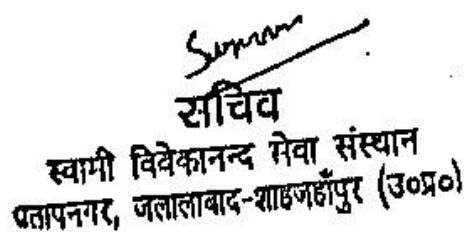 सचिव
स्वामी विवेकानन्द सेवा संस्थान
प्रतापनगर, जलालाबाद-शाहजहाँपुर (उ०प्र०)